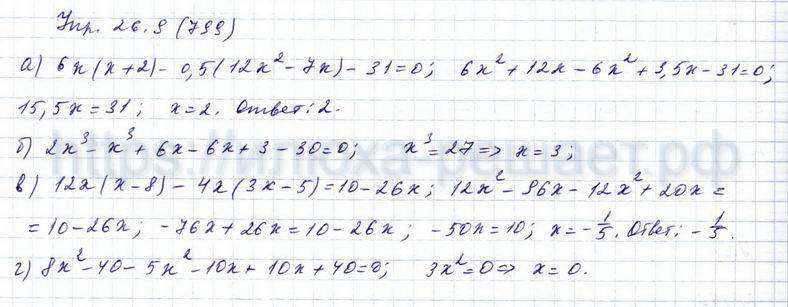 Упр. 26.9 (799)
а) 6x(x+2) - 0,5(12x² - 7x) - 31 = 0; 6x² + 12x - 6x² + 3,5x - 31 = 0;
15,5x = 31; x = 2. Ответ: 2.
б) 2x³ - x³ + 6x - 6x + 3 - 30 = 0; x³ = 27 => x = 3;
в) 12x(x-8) - 4x(3x-5) = 10 - 26x; 12x² - 96x - 12x² + 20x =
= 10 - 26x; -76x + 26x = 10 - 26x; -50x = 10; x = -1/5. Ответ: -1/5.
г) 8x² - 40 - 5x² - 10x + 10x + 40 = 0; 3x² = 0 => x = 0.